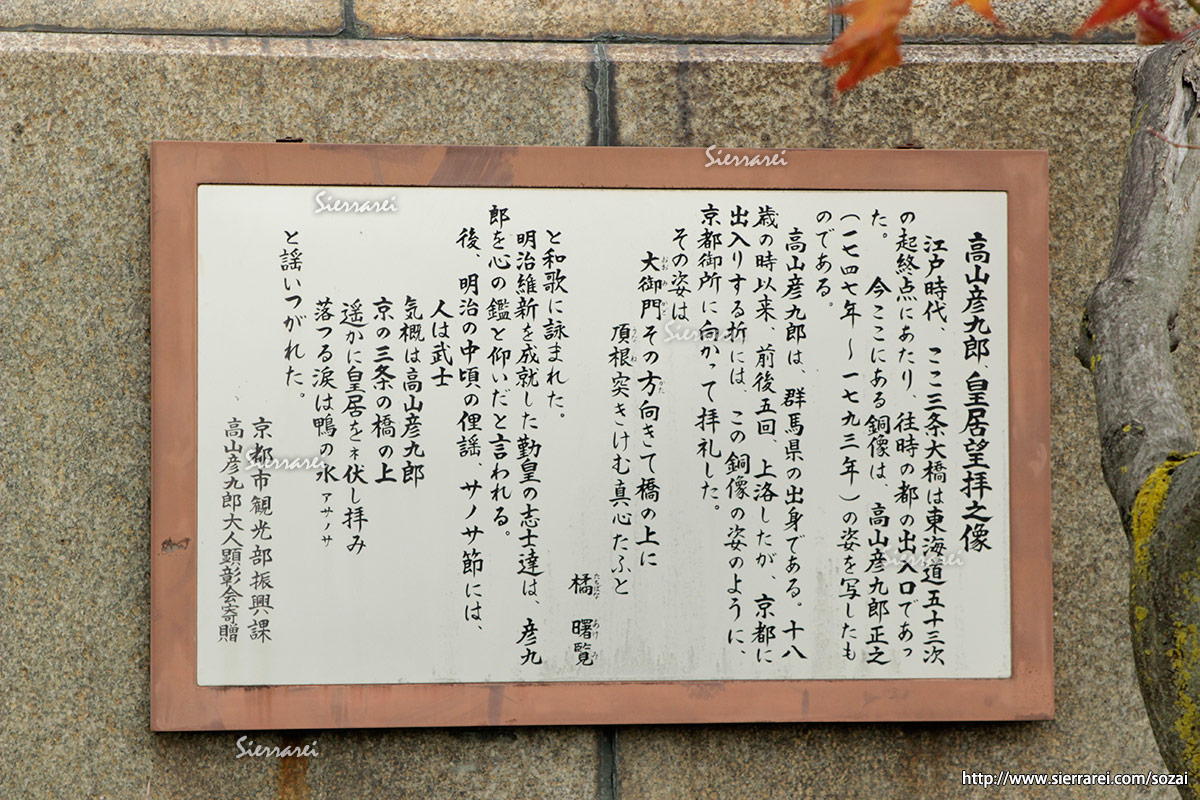 高山彦九郎、皇居望拝之像
江戸時代、ここ三条大橋は東海道五十三次
の起終点にあたり、往時の都の出入口であっ
た。　今ここにある銅像は、高山彦九郎正之
(一七四七年〜一七九三年)の姿を写したも
のである。
高山彦九郎は、群馬県の出身である。十八
歳の時以来、前後五回、上洛したが、京都に
出入りする折には、この銅像の姿のように、
京都御所に向かって拝礼した。
その姿は
大御門その方向きて橋の上に
頂根突きけむ真心たふと
橘　曙覧
と和歌に詠まれた。
明治維新を成就した勤皇の志士達は、彦九
郎を心の鑑と仰いだと言われる。
後、明治の中頃の俚謡、サノサ節には、
人は武士
気概は高山彦九郎
京の三条の橋の上
遥かに皇居をネ伏し拝み
落つる涙は鴨の水アサノサ
と謡いつがれた。
京都市観光部振興課
高山彦九郎大人顕彰会寄贈
Sierrarei
Sierrarei
Sierrarei
Sierrarei
Sierrarei
Sierrarei
http://www.sierrarei.com/sozai